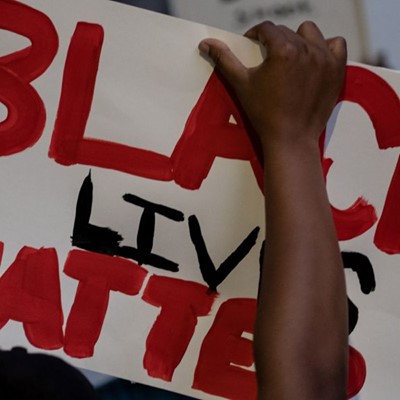 BLAC
LIVES
MATTE